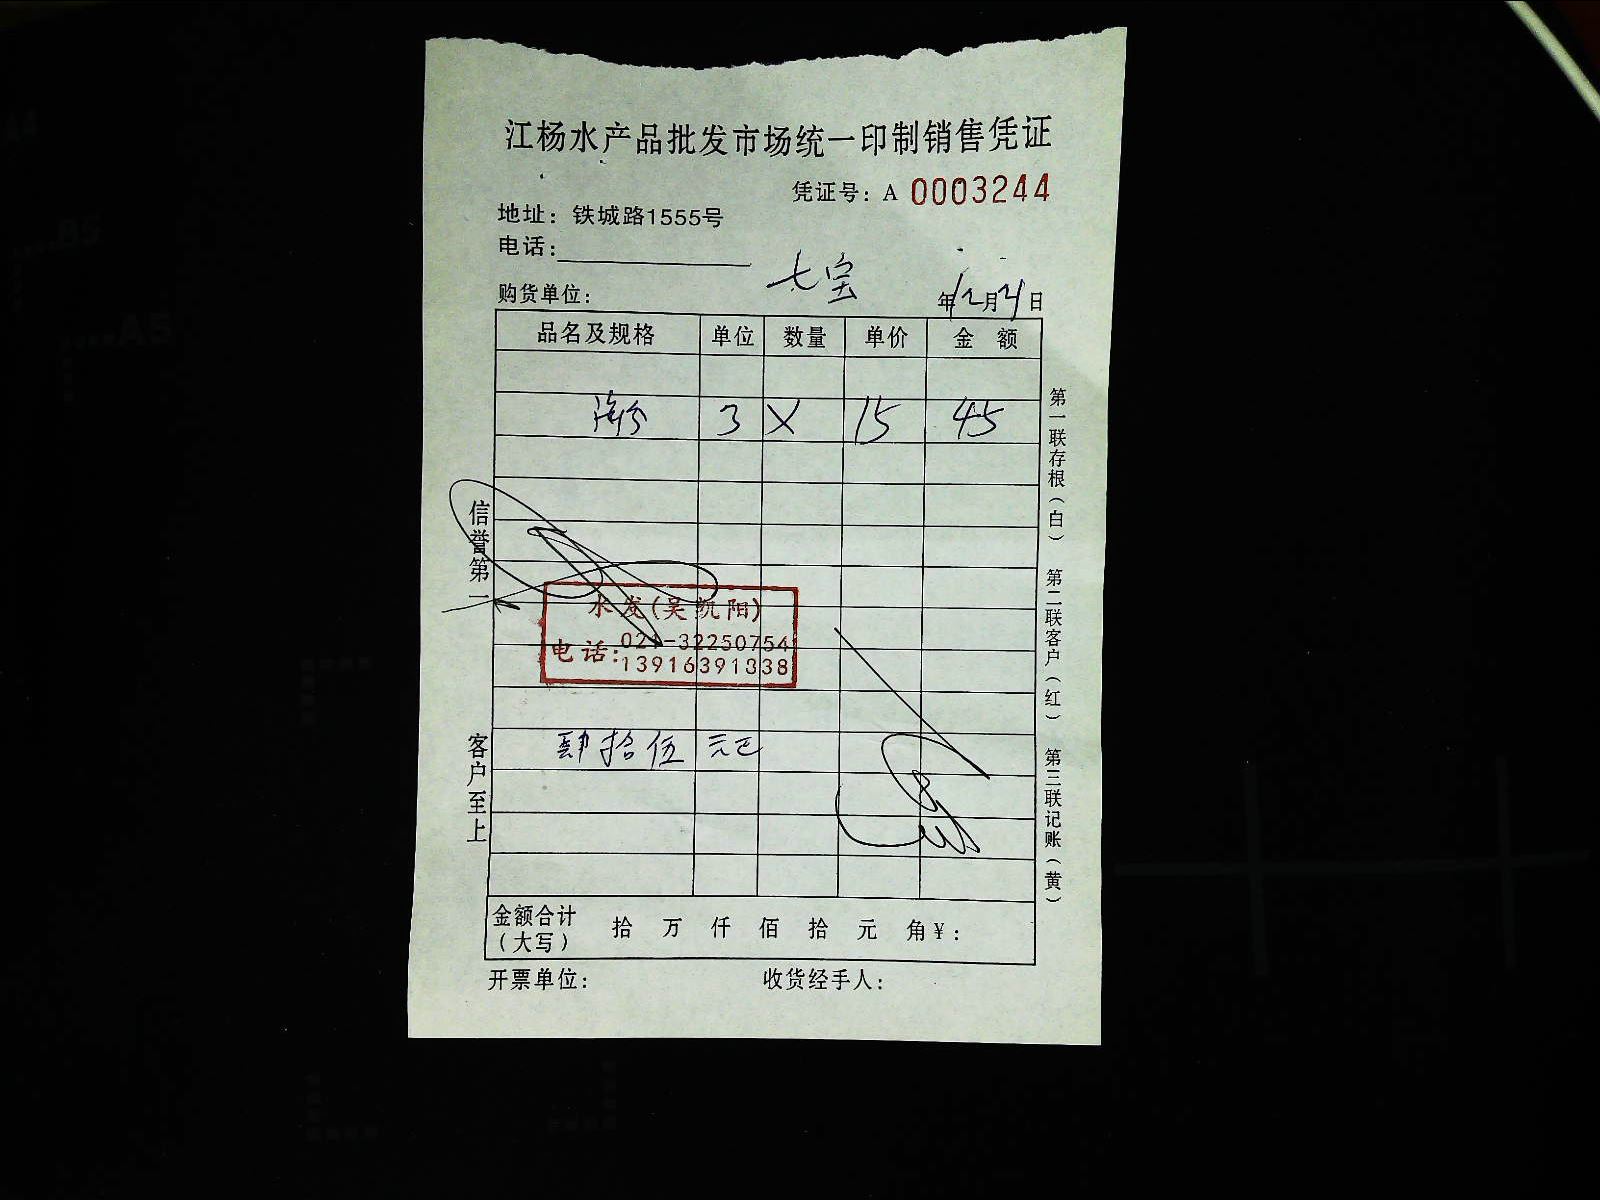 江杨水产品批发市场统一印制销售凭证
凭证号：A 0003244
地址：铁城路1555号
电话：
七宝
购货单位：
年12月21日
品名及规格 单位 数量 单价 金额
3 X 15 45
信誉第一
水发(吴凯阳)
电话：021-32250754
13916391338
肆拾伍元正
客户至上
第一联存根（白）
第二联客户（红）
第三联记账（黄）
金额合计（大写） 拾 万 仟 佰 拾 元 角￥：
开票单位： 收货经手人：